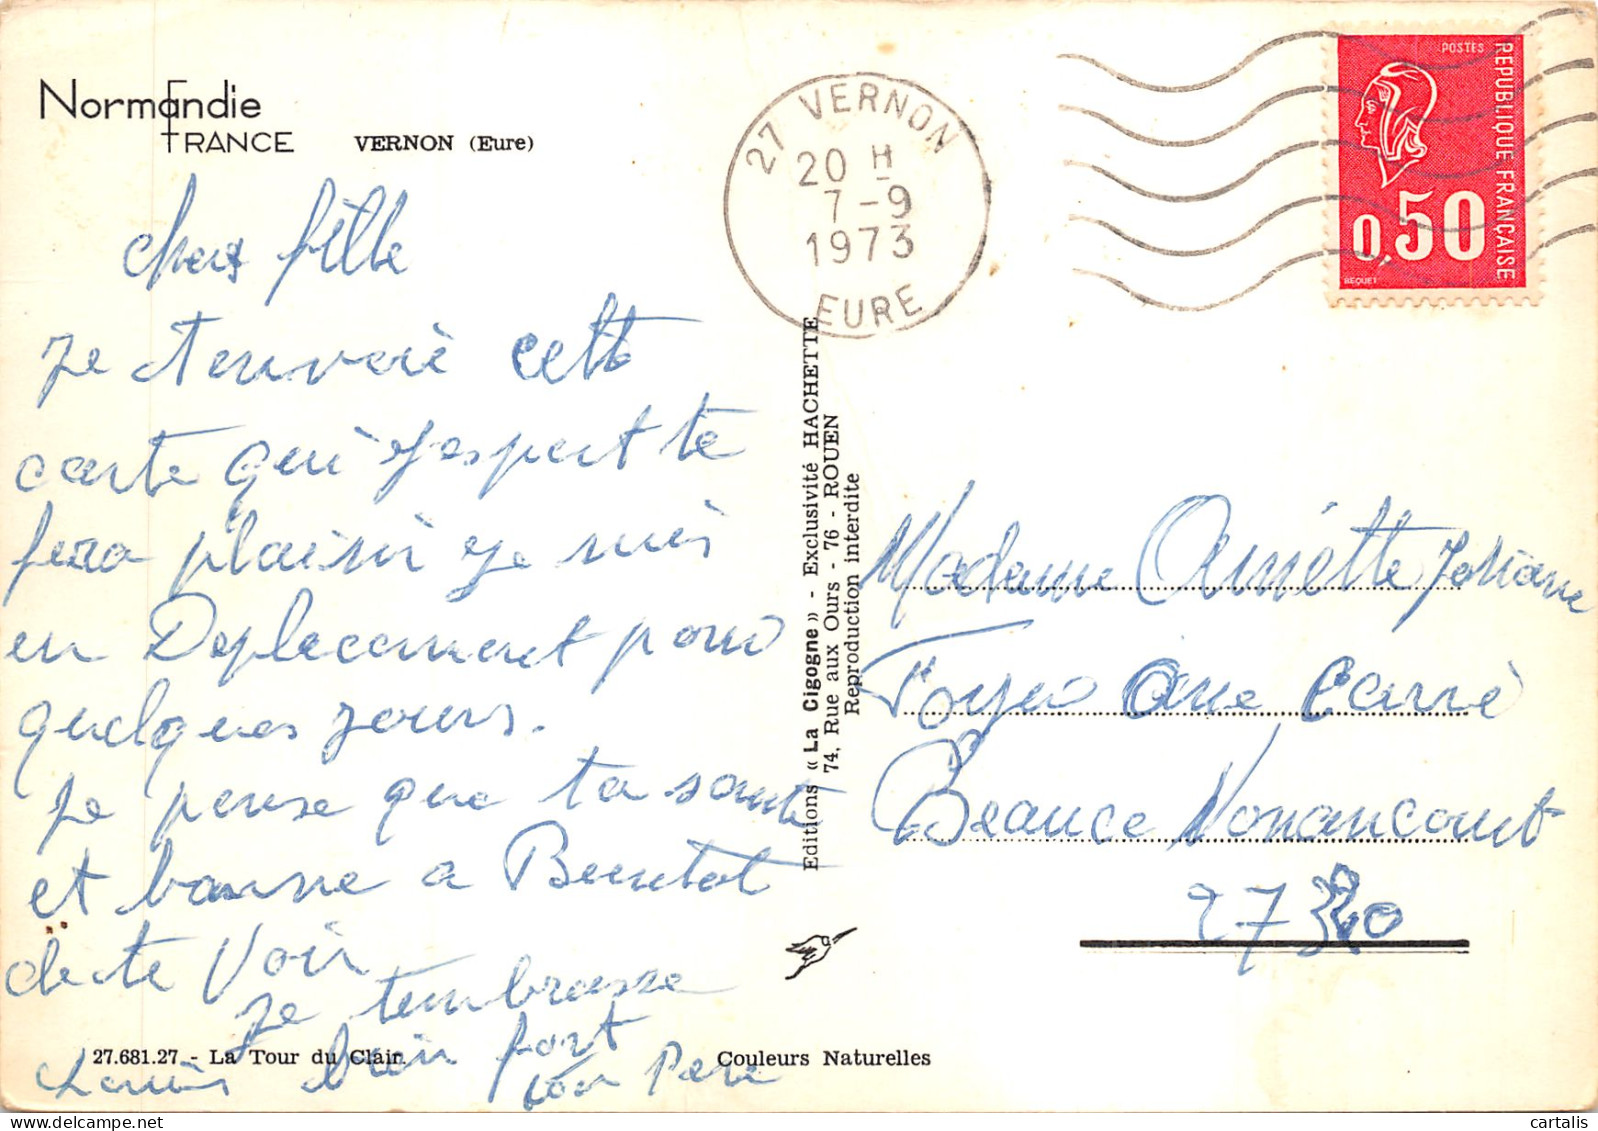 Normandie
FRANCE
VERNON (Eure)
27 VERNON
20 H
7-9
1973
EURE
POSTES
REPUBLIQUE FRANÇAISE
0,50
BEQUET
chere fille
Je t envoie cette
carte qui j'espert te
fera plaisir je suis
en Deplacement pour
quelques jours.
Je pense que ta sante
et bonne a Beentot
de te Voir
Je tembrasse
bien fort
ton Pere
Editions « La Cigogne » - Exclusivité HACHETTE
74, Rue aux Ours - 76 - ROUEN
Reproduction interdite
Madame
Beauce Nonancourt
27320
27.681.27 - La Tour du Clair.
Couleurs Naturelles
cartalis